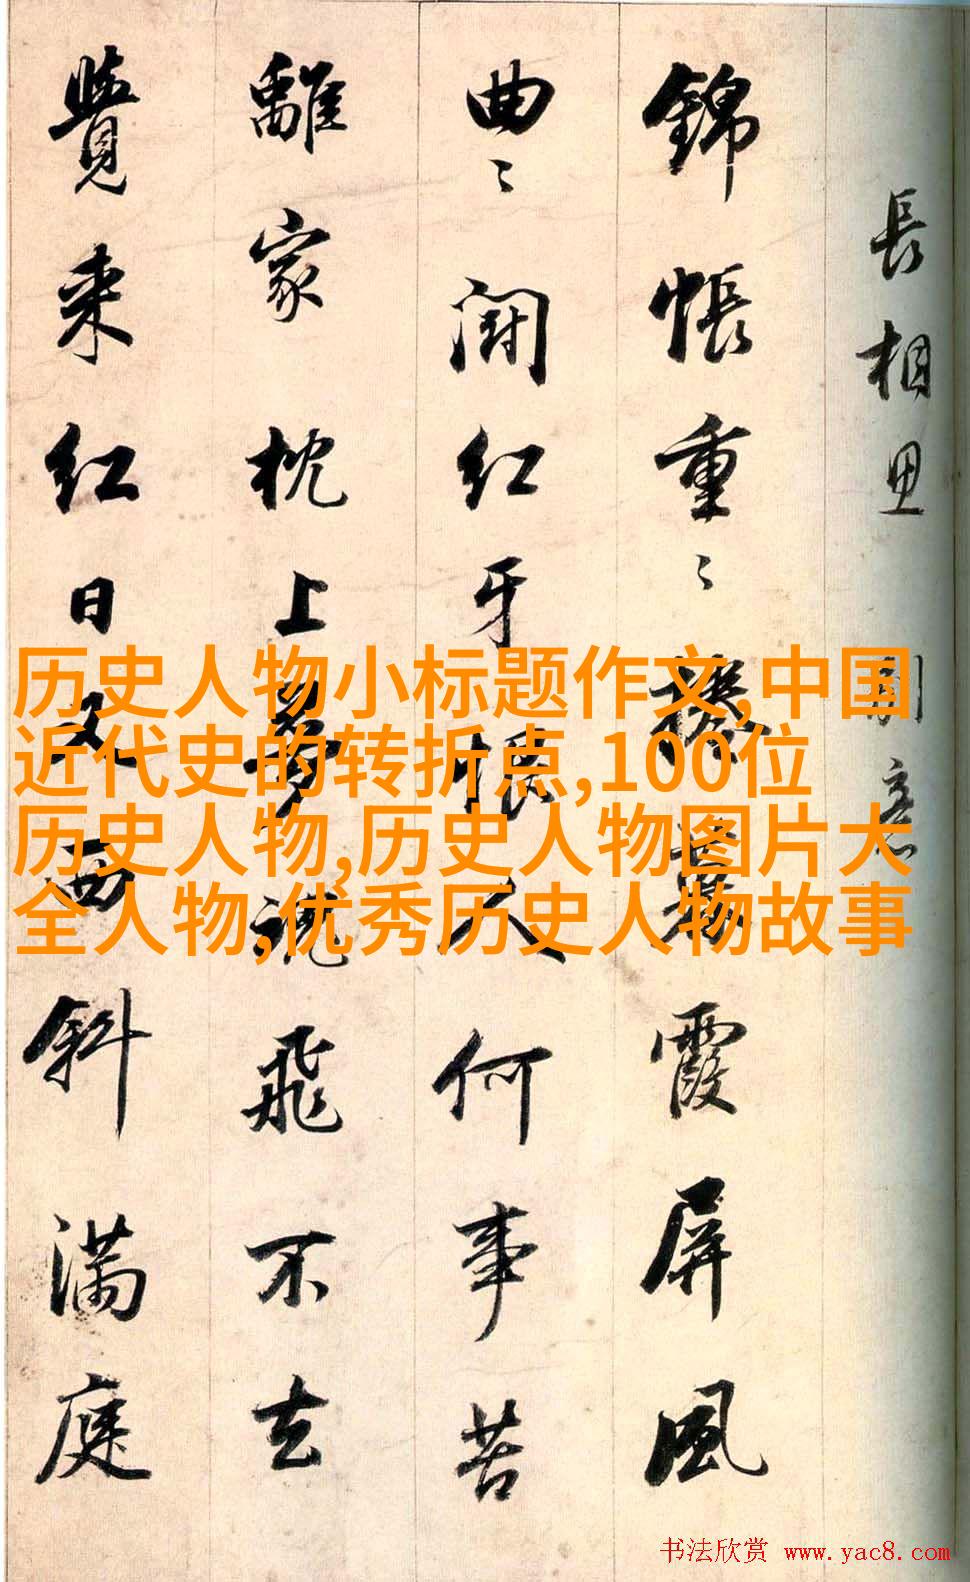 長相思別意
錦帳重〻捲暮霞屏風
曲〻鬪紅牙恨人何事苦
離家枕上夢魂飛不去
覺來紅日又西斜滿庭
历史人物小标题作文,中国
近代史的转折点,100位
历史人物,历史人物图片大
全人物,优秀历史人物故事
书法欣赏 www.yac8.com